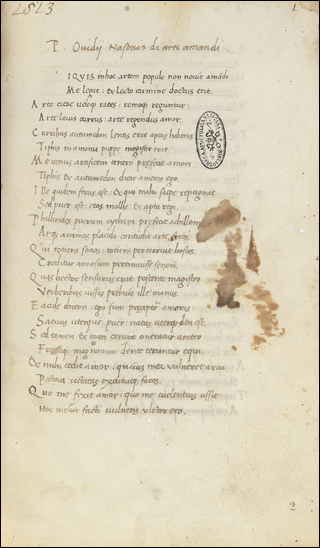 2813
1
P. Ouidij Nasonis de arte amandi
IQVIS in hoc artem populo non nouit amādi
Me legat: et lecto carmine doctus erit.
Arte citae ueloqz rates: remoqz reguntur:
Arte leuis currus: arte regendus amor.
Curribus automedon lentis erat aptus habenis
Tiphis in aemonia puppe magister erat.
Me uenus artificem tenero praefecit amori
Tiphis et automedon dicar amoris ego.
Ille quidem ferus est: et qui mihi saepe repugnet
Sed puer est: etas mollis: et apta regi.
Phillirides puerum cythara praefecit achillem
Atqz animos placida contudit arte feros.
Qui totiens socios: totiens perterruit hostes:
Creditur annosum pertimuisse senem.
Quas hector sensurus erat poscente magistro
Verberibus iussas prebuit ille manus.
Eacidae chiron: ego sum preceptor amoris:
Saeuus uterque puer: natus uterqz dea est.
Sed tamen et tauri ceruix oneratur aratro
Frenaqz magnanimi dente teruntur equi.
Et mihi cedit amor: quamuis mea uulneret arcu
Pectora: iactatas excutiatqz faces.
Quo me fixit amor: quo me uiolentius ussit
Hoc melior facti uulneris ultor ero.
2